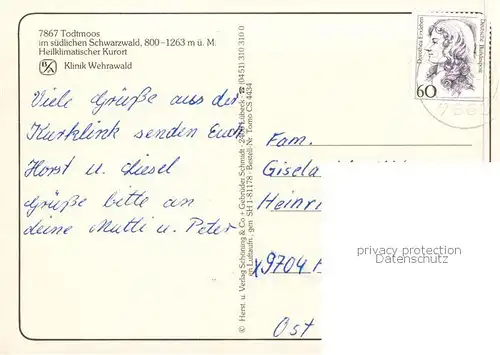 7867 Todtmoos
im südlichen Schwarzwald, 800–1263 m ü. M.
Heilklimatischer Kurort
Klinik Wehrawald
Viele Grüße aus der
Kurklink senden Euch
Horst u. Liesel
Grüße bitte an
deine Mutti u. Peter
© Herst. u. Verlag Schöning & Co + Gebrüder Schmidt · 2400 Lübeck · ☎ (0451) 310 310 0
Luftaufn., gen. SH 1-81178 · Bestell Nr. Tomo CS 4434
Dorothea Erxleben
Deutsche Bundespost
60
Fam.
Gisela
Heinri
9704
Ost
privacy protection
Datenschutz